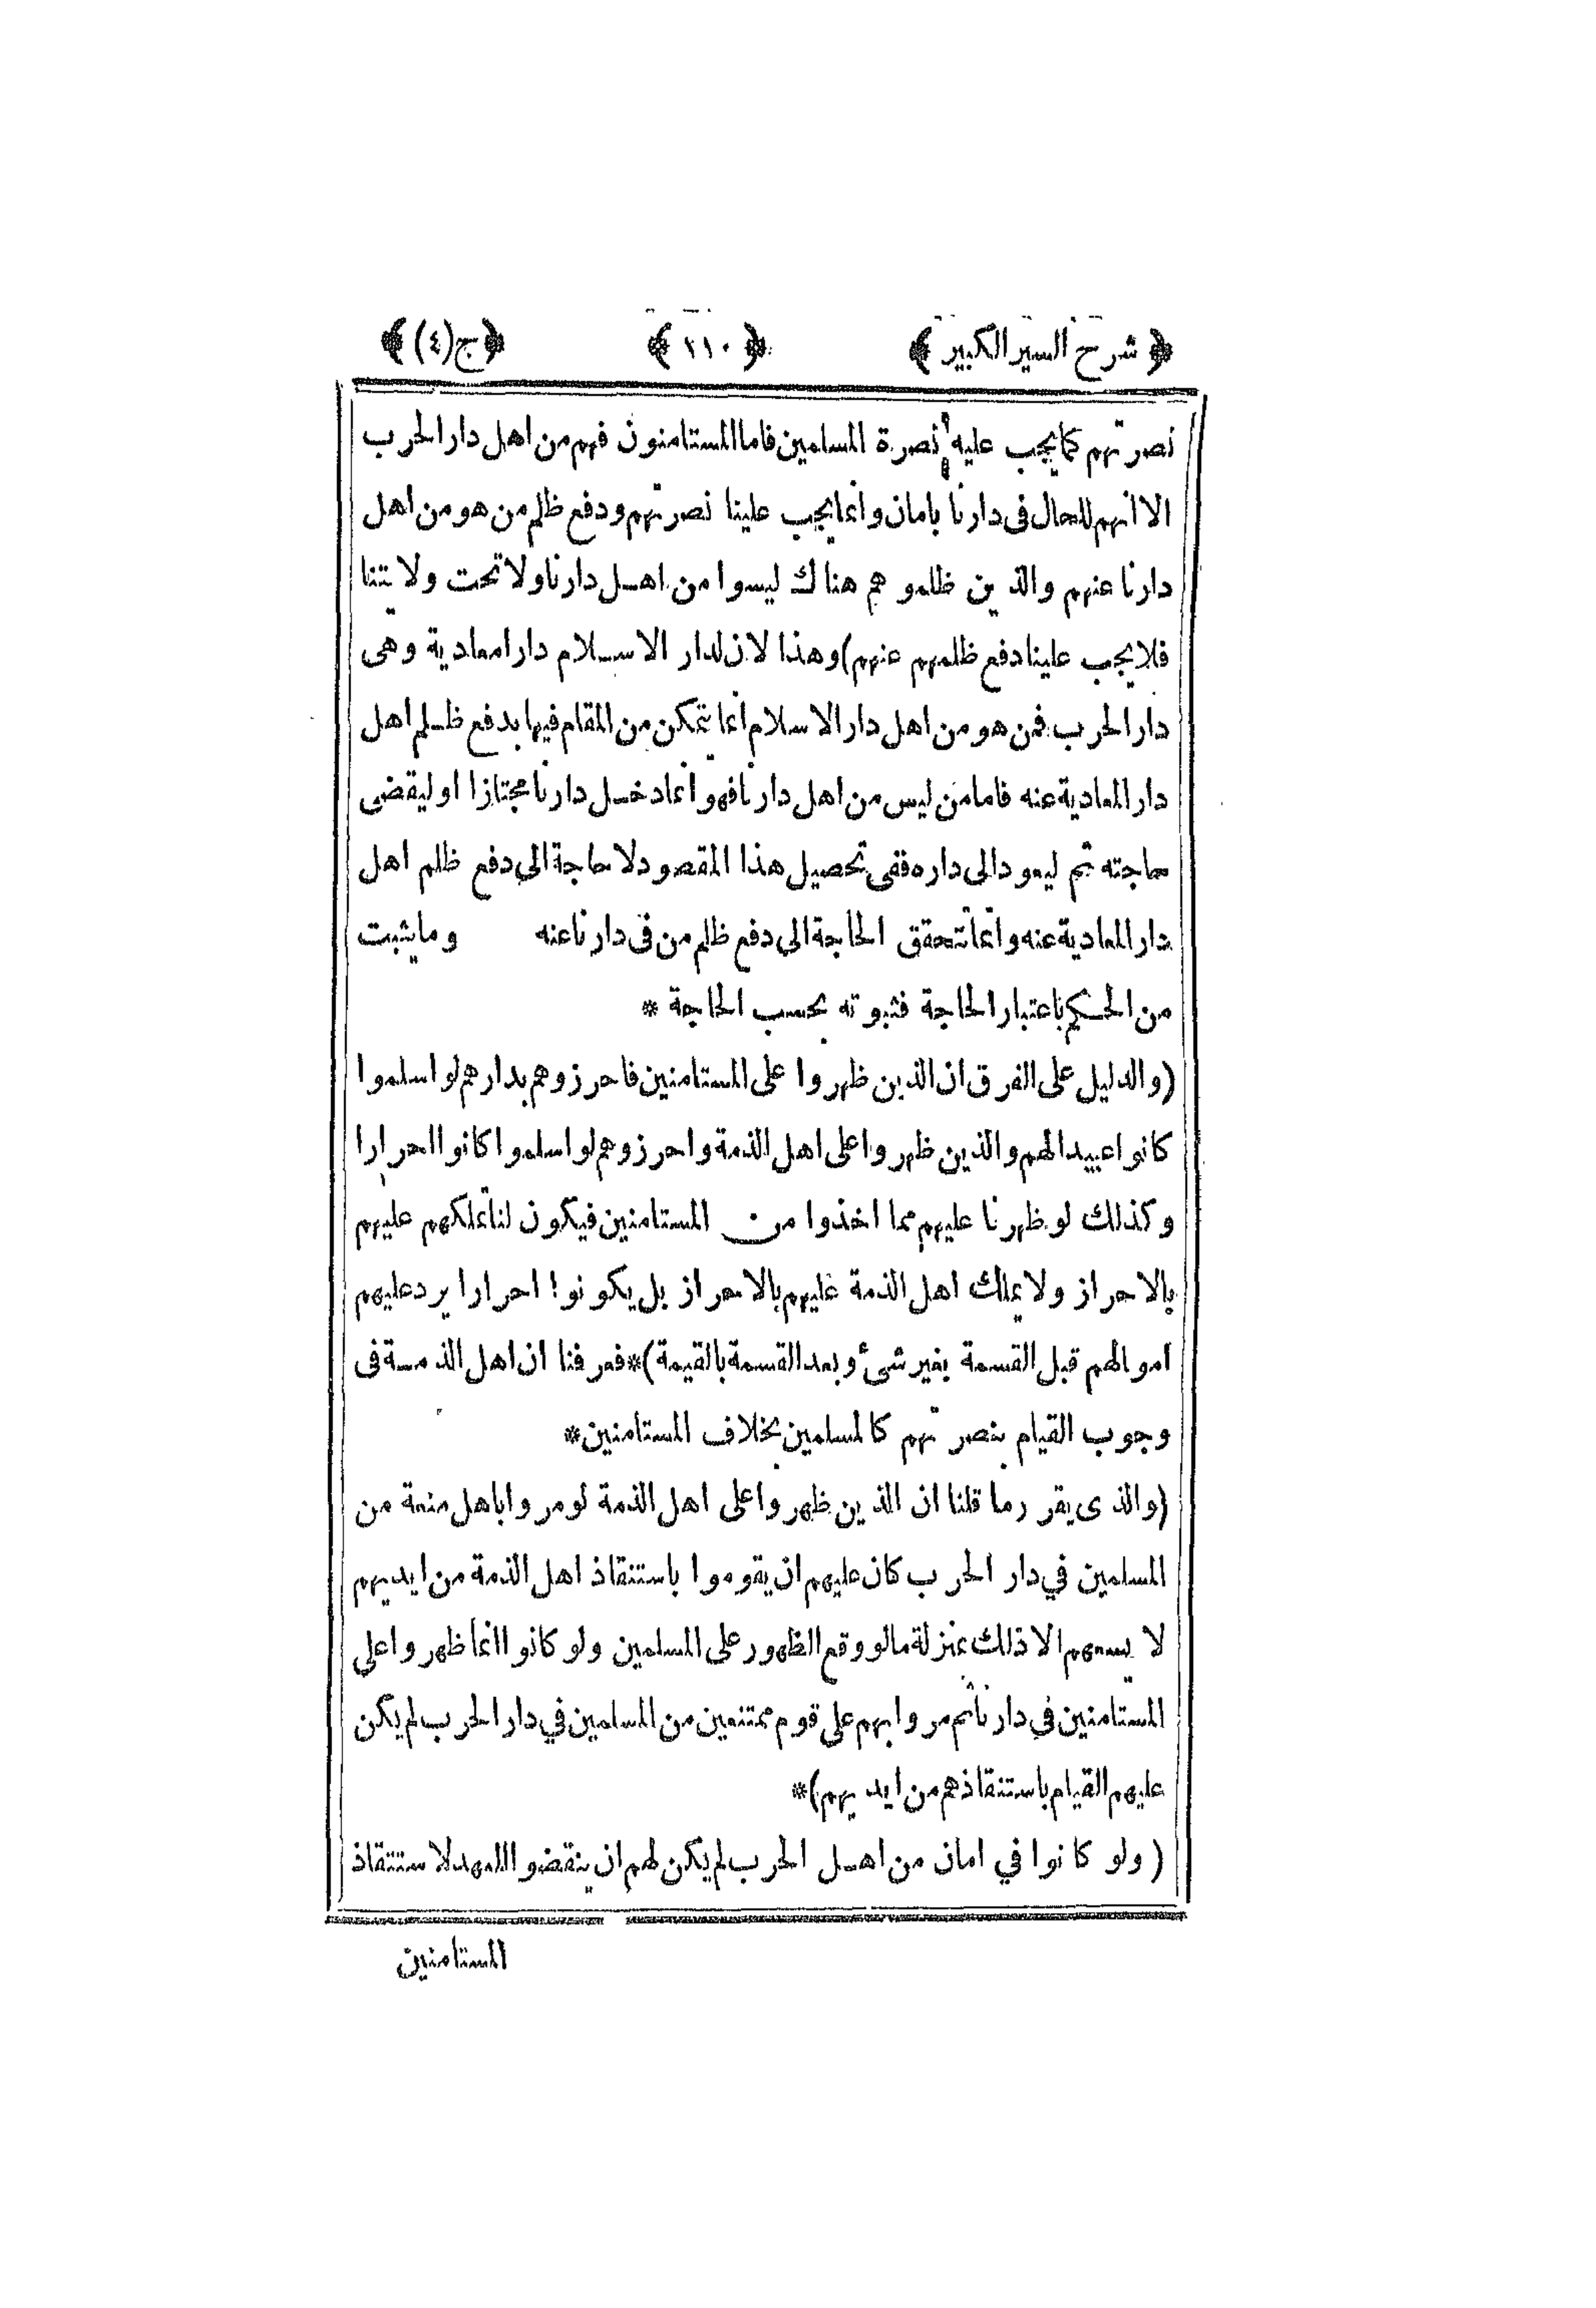 ﴿ شرح السير الكبير ﴾ ﴿ ٢١٠ ﴾ ﴿ ج(٤) ﴾
نصرتهم كما يجب عليه نصرة المسلمين فاما المستامنون فهم من اهل دار الحرب
الا انهم للحال فى دارنا بامان وانما يجب علينا نصرتهم ودفع ظلم من هو من اهل
دارنا عنهم والذين ظلموهم هناك ليسوا من اهل دارنا ولا تحت ولايتنا
فلا يجب علينا دفع ظلمهم عنهم)وهذا لان لدار الاسلام دارا معادية وهى
دار الحرب فمن هو من اهل دار الاسلام انما يتمكن من المقام فيها بدفع ظلم اهل
دار المعادية عنه فاما من ليس من اهل دارنا فهو انما دخل دارنا مجتازا او ليقضى
حاجته ثم ليعود الى داره ففى تحصيل هذا المقصود لا حاجة الى دفع ظلم اهل
دار المعادية عنه وانما تتحقق الحاجة الى دفع ظلم من فى دارنا عنه وما يثبت
من الحكم باعتبار الحاجة فثبوته بحسب الحاجة *
(والدليل على الفرق ان الذين ظهروا على المستامنين فاحرزوهم بدارهم لو اسلموا
كانوا عبيدا لهم والذين ظهروا على اهل الذمة واحرزوهم لو اسلموا كانوا احرارا
وكذلك لو ظهرنا عليهم مما اخذوا من المستامنين فيكون لنا تملكهم عليهم
بالاحراز ولا يملك اهل الذمة عليهم بالاحراز بل يكونوا احرارا يرد عليهم
اموالهم قبل القسمة بغير شئ وبعد القسمة بالقيمة)*فعرفنا ان اهل الذمة فى
وجوب القيام بنصرتهم كالمسلمين بخلاف المستامنين*
(والذى يقرر ما قلنا ان الذين ظهروا على اهل الذمة لو مروا باهل منعة من
المسلمين في دار الحرب كان عليهم ان يقوموا باستنقاذ اهل الذمة من ايديهم
لا يسعهم الا ذلك بمنزلة ما لو وقع الظهور على المسلمين ولو كانوا انما ظهروا على
المستامنين في دارنا ثم مروا بهم على قوم ممتنعين من المسلمين في دار الحرب لم يكن
عليهم القيام باستنقاذهم من ايديهم)*
( ولو كانوا في امان من اهل الحرب لم يكن لهم ان ينقضوا العهد لاستنقاذ
المستامنين